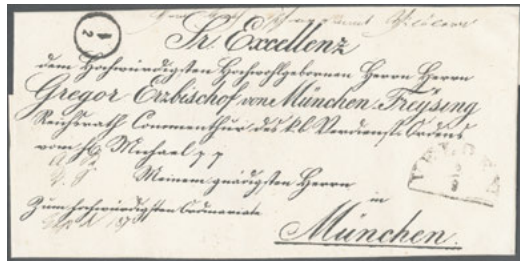 1
2
Sr. Excellenz
dem Hochwürdigsten Hochwohlgebornen Herrn Herrn
Gregor Erzbischof von München-Freysing
Reichsrath Commenthur des kb Verdienst-Ordens
vom hl Michael p p
Meinem gnädigsten Herrn
in
Zum hochwürdigsten Ordinariate
München.